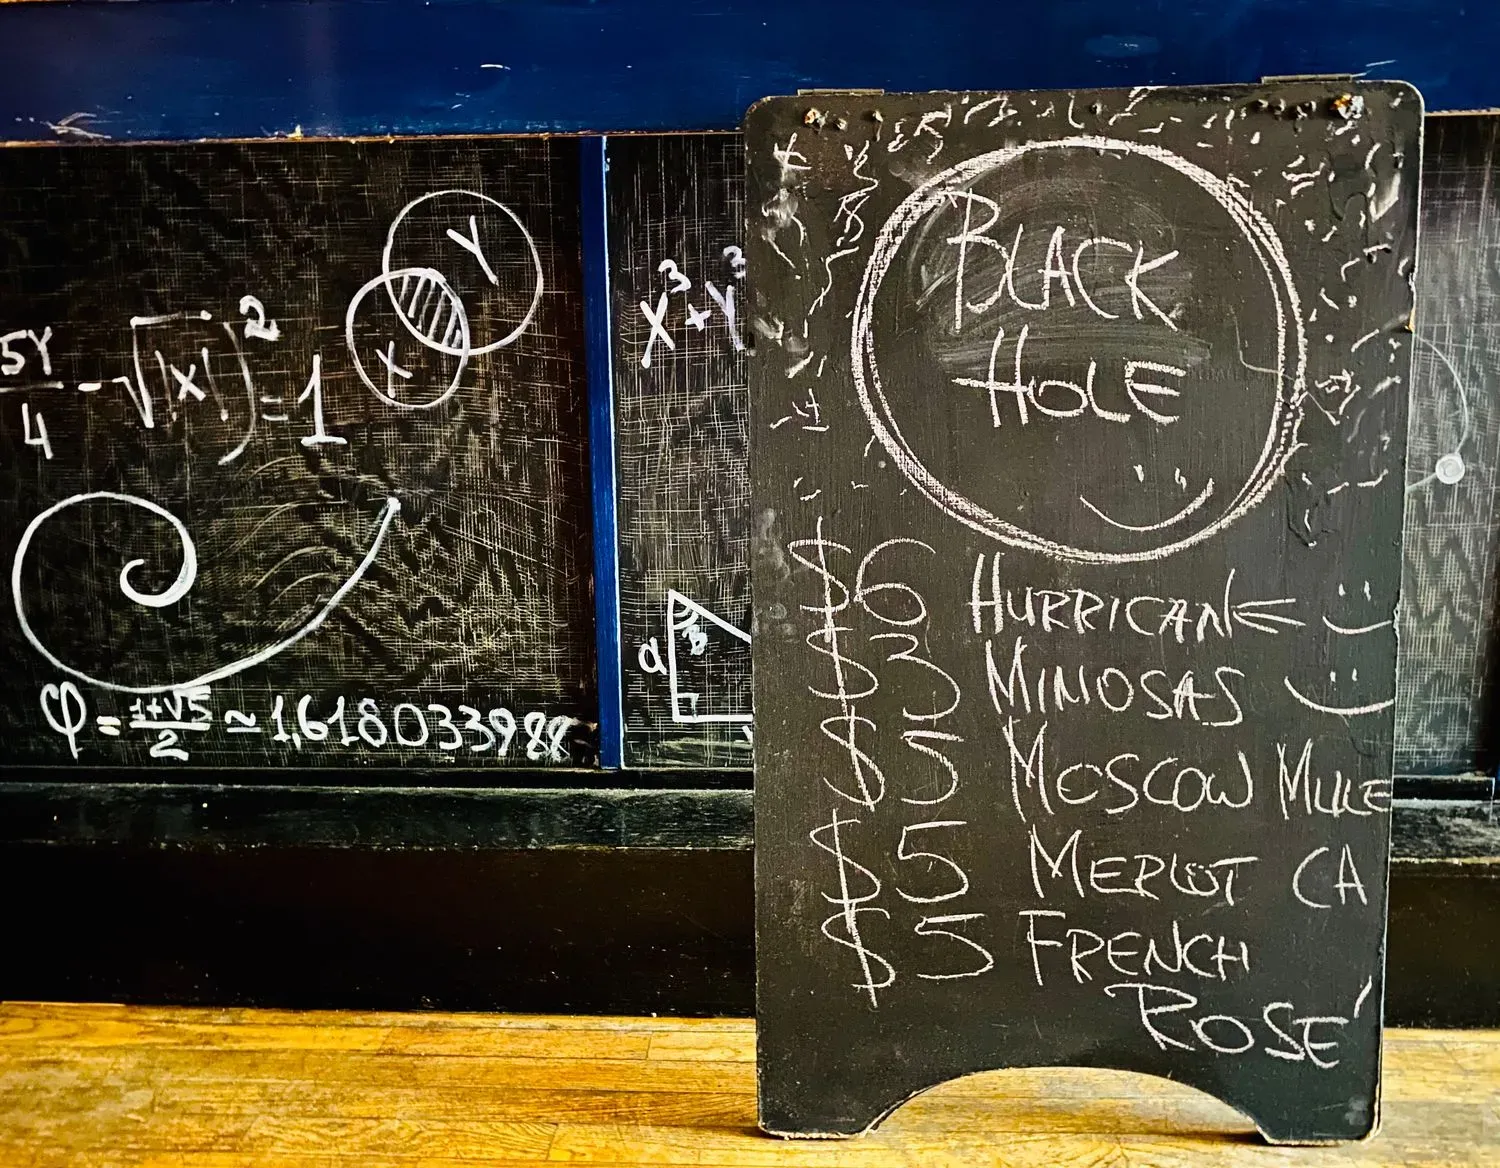 Y
X
5Y/4 - √|X|)² = 1
φ = 1+√5/2 ≃ 1,6180339988
X³+Y³
a
B
BLACK
HOLE
$6 HURRICANE
$3 MIMOSAS
$5 MOSCOW MULE
$5 MERLOT CA
$5 FRENCH
ROSÉ